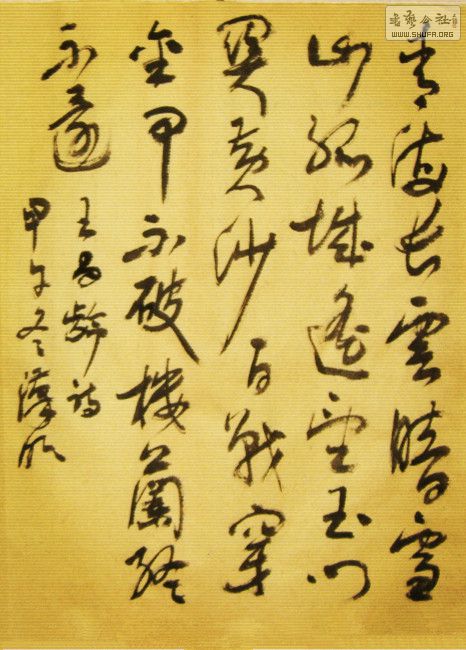 青海长雲暗雪
山孤城遥望玉门
關黄沙百戰穿
金甲不破樓蘭终
不還
王昌龄诗
甲午冬
书艺公社
WWW.SHUFA.ORG